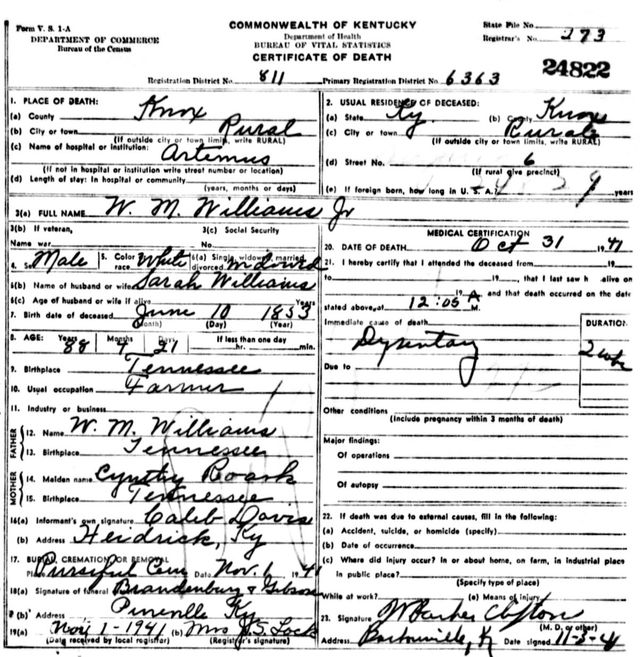 Form V. S. 1-A
DEPARTMENT OF COMMERCE
Bureau of the Census
COMMONWEALTH OF KENTUCKY
Department of Health
BUREAU OF VITAL STATISTICS
CERTIFICATE OF DEATH
State File No.
Registrar's No. 273
24822
Registration District No. 811 Primary Registration District No. 6363
1. PLACE OF DEATH:
(a) County Knox
(b) City or town Rural
(If outside city or town limits, write RURAL)
(c) Name of hospital or institution: Artemus
(If not in hospital or institution write street number or location)
(d) Length of stay: In hospital or community
(years, months or days)
2. USUAL RESIDENCE OF DECEASED:
(a) State Ky. (b) County Knox
(c) City or town Rural
(If outside city or town limits, write RURAL)
(d) Street No. 6
(If rural give precinct)
(e) If foreign born, how long in U. S. A.? years
3(a) FULL NAME W. M. Williams Jr
3(b) If veteran, 3(c) Social Security
Name war No.
4. Sex Male 5. Color race White 6(a) Single, widowed, married, divorced Widowed
6(b) Name of husband or wife Sarah Williams
6(c) Age of husband or wife if alive Years
7. Birth date of deceased June 10 1853
(Month) (Day) (Year)
8. AGE: Years Months Days If less than one day
88 4 21 hr. min.
9. Birthplace Tennessee
10. Usual occupation Farmer
11. Industry or business
FATHER
12. Name W. M. Williams
13. Birthplace Tennessee
MOTHER
14. Maiden name Cynthy Roark
15. Birthplace Tennessee
16(a) Informant's own signature Caleb Davis
(b) Address Heidrick, Ky
17. BURIAL, CREMATION OR REMOVAL
Place Pursiful Cem Date Nov. 1, 1941
18(a) Signature of funeral Brandenburg & Gibson
(b) Address Pineville Ky
19(a) Nov 1-1941 (b) Mrs J. S. Lock
(Date received by local registrar) (Registrar's signature)
MEDICAL CERTIFICATION
20. DATE OF DEATH Oct 31 1941
21. I hereby certify that I attended the deceased from 19
to 19 , that I last saw h alive on
19 and that death occurred on the date
stated above, at 12:05 A M.
Immediate cause of death DURATION
Dysentary 2 wks
Due to
Other conditions
(Include pregnancy within 3 months of death)
Major findings:
Of operations
Of autopsy
22. If death was due to external causes, fill in the following:
(a) Accident, suicide, or homicide (specify)
(b) Date of occurrence
(c) Where did injury occur? In or about home, on farm, in industrial place
in public place?
(Specify type of place)
While at work? (e) Means of injury
23. Signature W Parker Clifton
(M. D. or other)
Address Barbourville, K Date signed 11-3-41